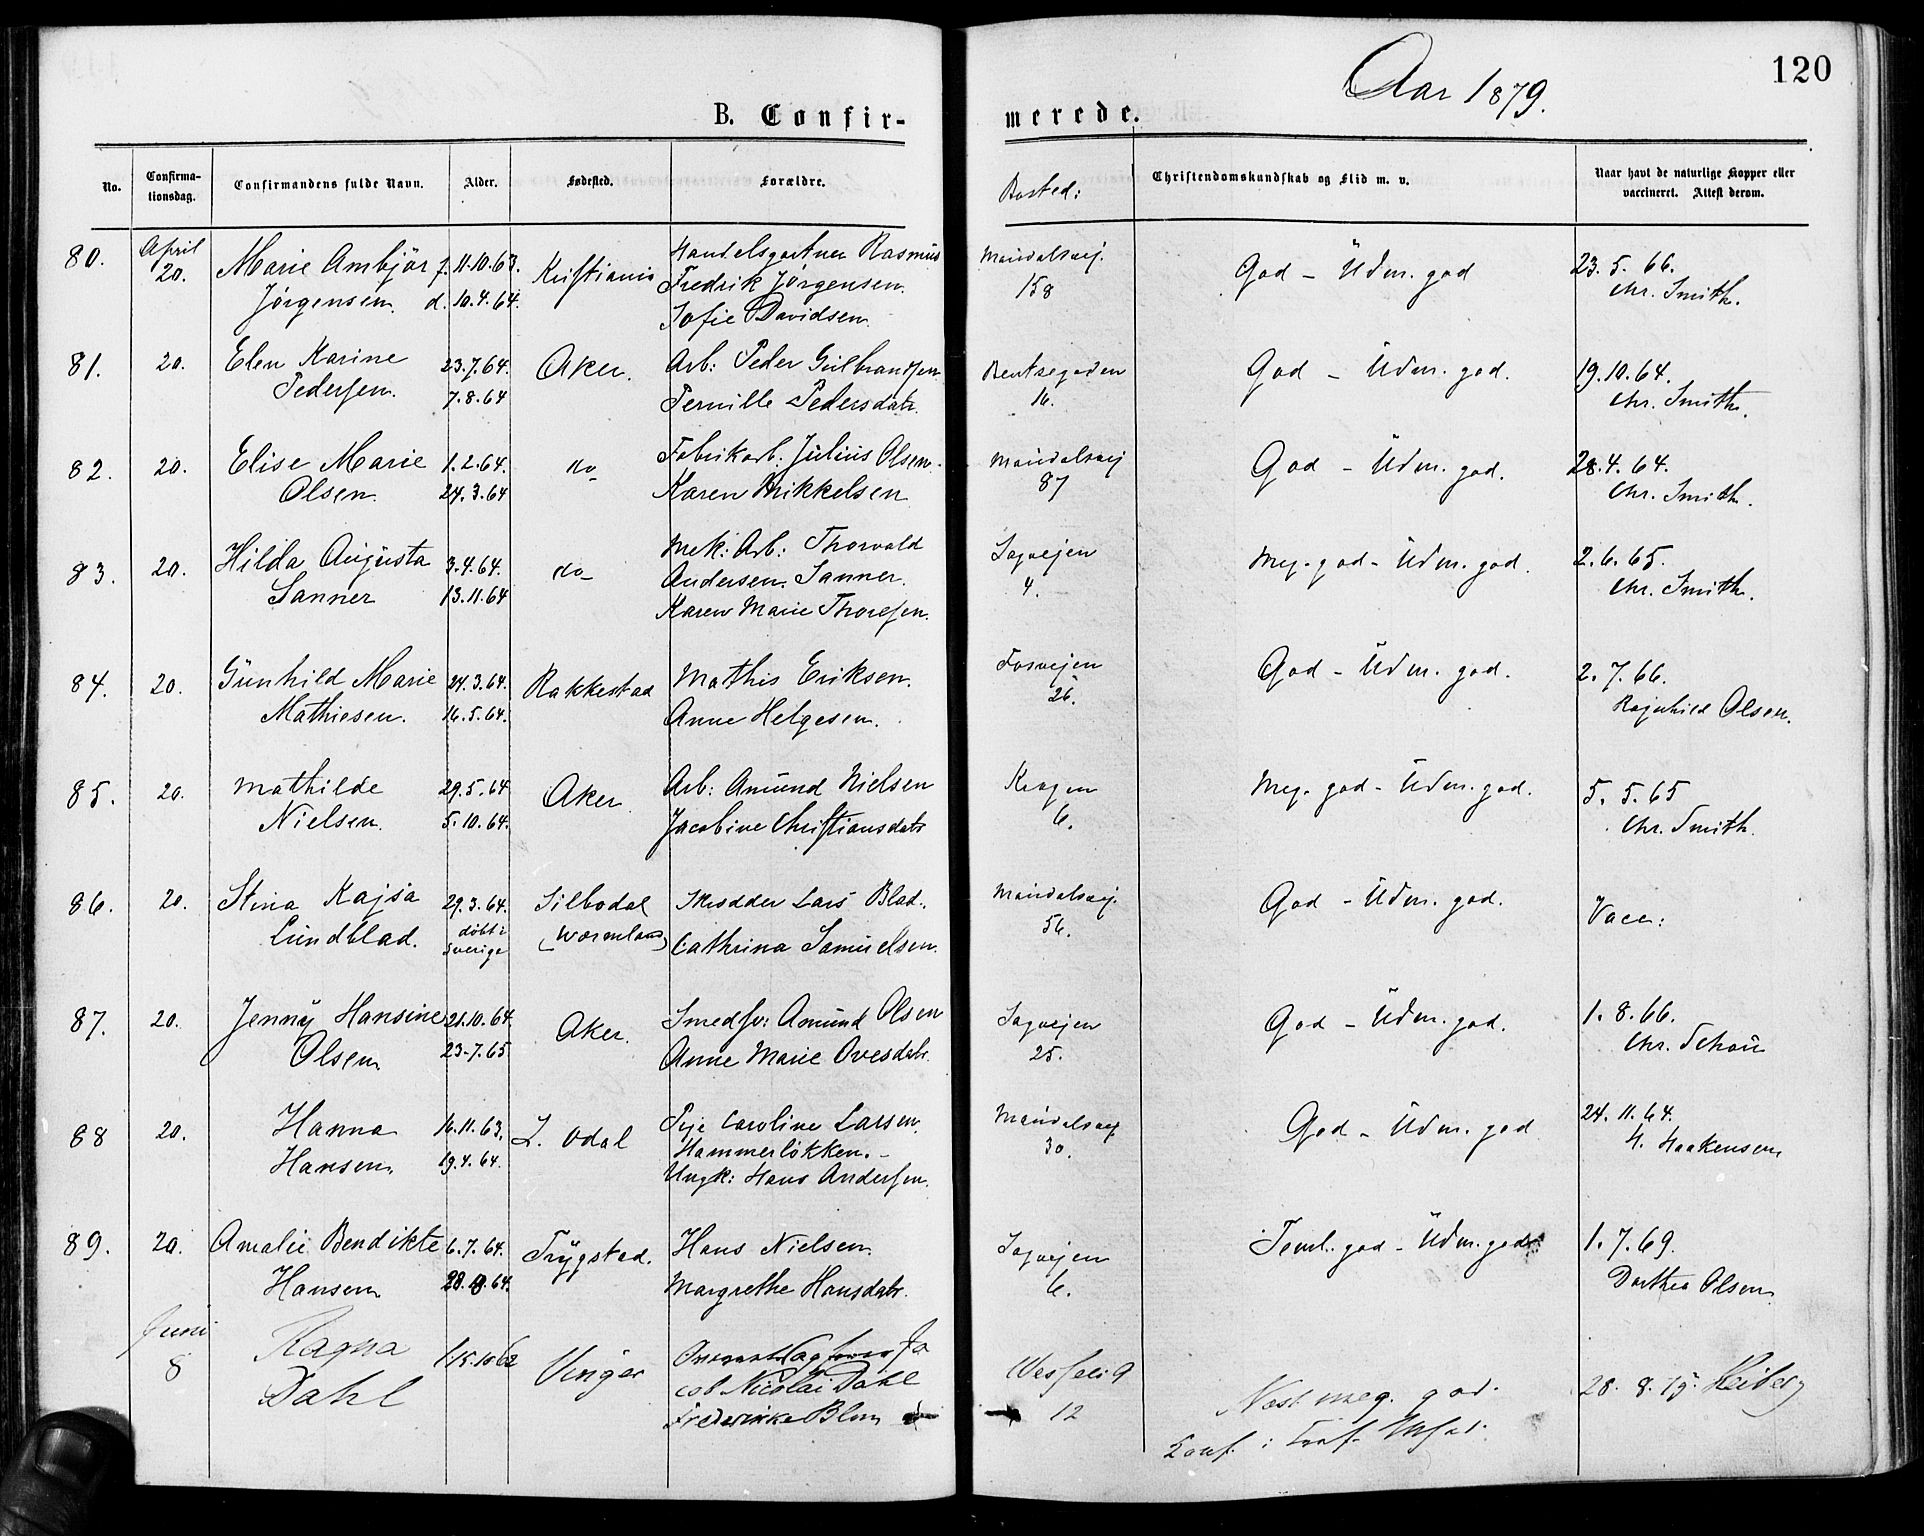 120
Aar 1879.
B. Confir-
merede.
No.
Confirma-
tionsdag.
Confirmandens fulde Navn.
Alder.
Fødested.
Forældre.
Bosted:
Christendomskundskab og Flid m. v.
Naar havt de naturlige Kopper eller
vaccineret. Attest derom.
80. April 20. Marie Ambjør f. 11.10.63. Kristiania Handelsgartner Rasmus Maridalsvej. God - Udm. god 23. 5. 66.
Jørgensen. d. 10.4.64. Fredrik Jørgensen. 158 Chr. Smith.
Sofie Davidsen.
81. 20. Elen Karine 23.7.64. Aker. Arb: Peder Gulbrandsen. Bentsegaden God - Udm. god. 19.10.64.
Pedersen. 7.8.64 Pernille Pedersdatr. 16. Chr. Smith.
82. 20. Elise Marie 1.2.64. do Fabrikarb. Julius Olsen. Maridalsvej God - Udm. god. 28.4.64.
Olsen. 24.3.64 Karen Mikkelsen 87 Chr. Smith.
83. 20. Hilda Augusta 3.4.64. do Mek: Arb: Thorvald Sagvejen Meg. god - Udm. god. 2.6.65.
Sanner 13.11.64 Andersen Sanner. 4. Chr. Smith.
Karen Marie Thoresen.
84. 20. Gunhild Marie 24.3.64. Rakkestad Mathis Eriksen. Fosvejen God - Udm. god. 2.7.66.
Mathiesen. 16.5.64. Anne Helgesen. 26. Ragnhild Olsen.
85. 20. Mathilde 29.5.64 Aker Arb: Amund Nielsen Krogen Meg. god - Udm. god. 5.5.65
Nielsen. 5.10.64. Jacobine Christiansdatr 6. Chr. Smith.
86. 20. Stina Kajsa 29.3.64. Silbodal Skrædder Lars Blad. Maridalsvej. God - Udm. god. Vacc:
Lundblad. døbt i (Wærmland) Cathrina Samuelsen. 56.
Sverige
87. 20. Jenny Hansine 21.10.64. Aker. Smedsv: Amund Olsen Sagvejen God - Udm. god. 1.8.66.
Olsen. 23.7.65 Anne Marie Ovesdatr. 25. Chr. Schou
88 20. Hanna 16.11.63. S. Odal Pige Caroline Larsen. Maridalsvej God - Udm. god 24.11.64.
Hansen. 19.4.64. Hammerløkken. - 30. H. Haakensen
Ungk: Hans Andersen.
89. 20. Amalie Bendikte 6.7.64. Trygstad. Hans Nielsen Sagvejen Teml. god - Udm. god 1.7.69.
Hansen 28. 64. Margrethe Hansdatr. 6. Dorthea Olsen
Juni 8 Ragna 15.10 62 Vinger Ja
Dahl cob Nicolai Dahl 12 Næst meg. god. 28. 8. 75. Heiberg
Frederikke Blom Conf. i